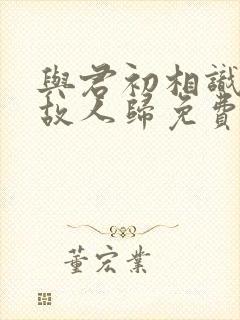 與君初相識
故人歸免費
董宏業